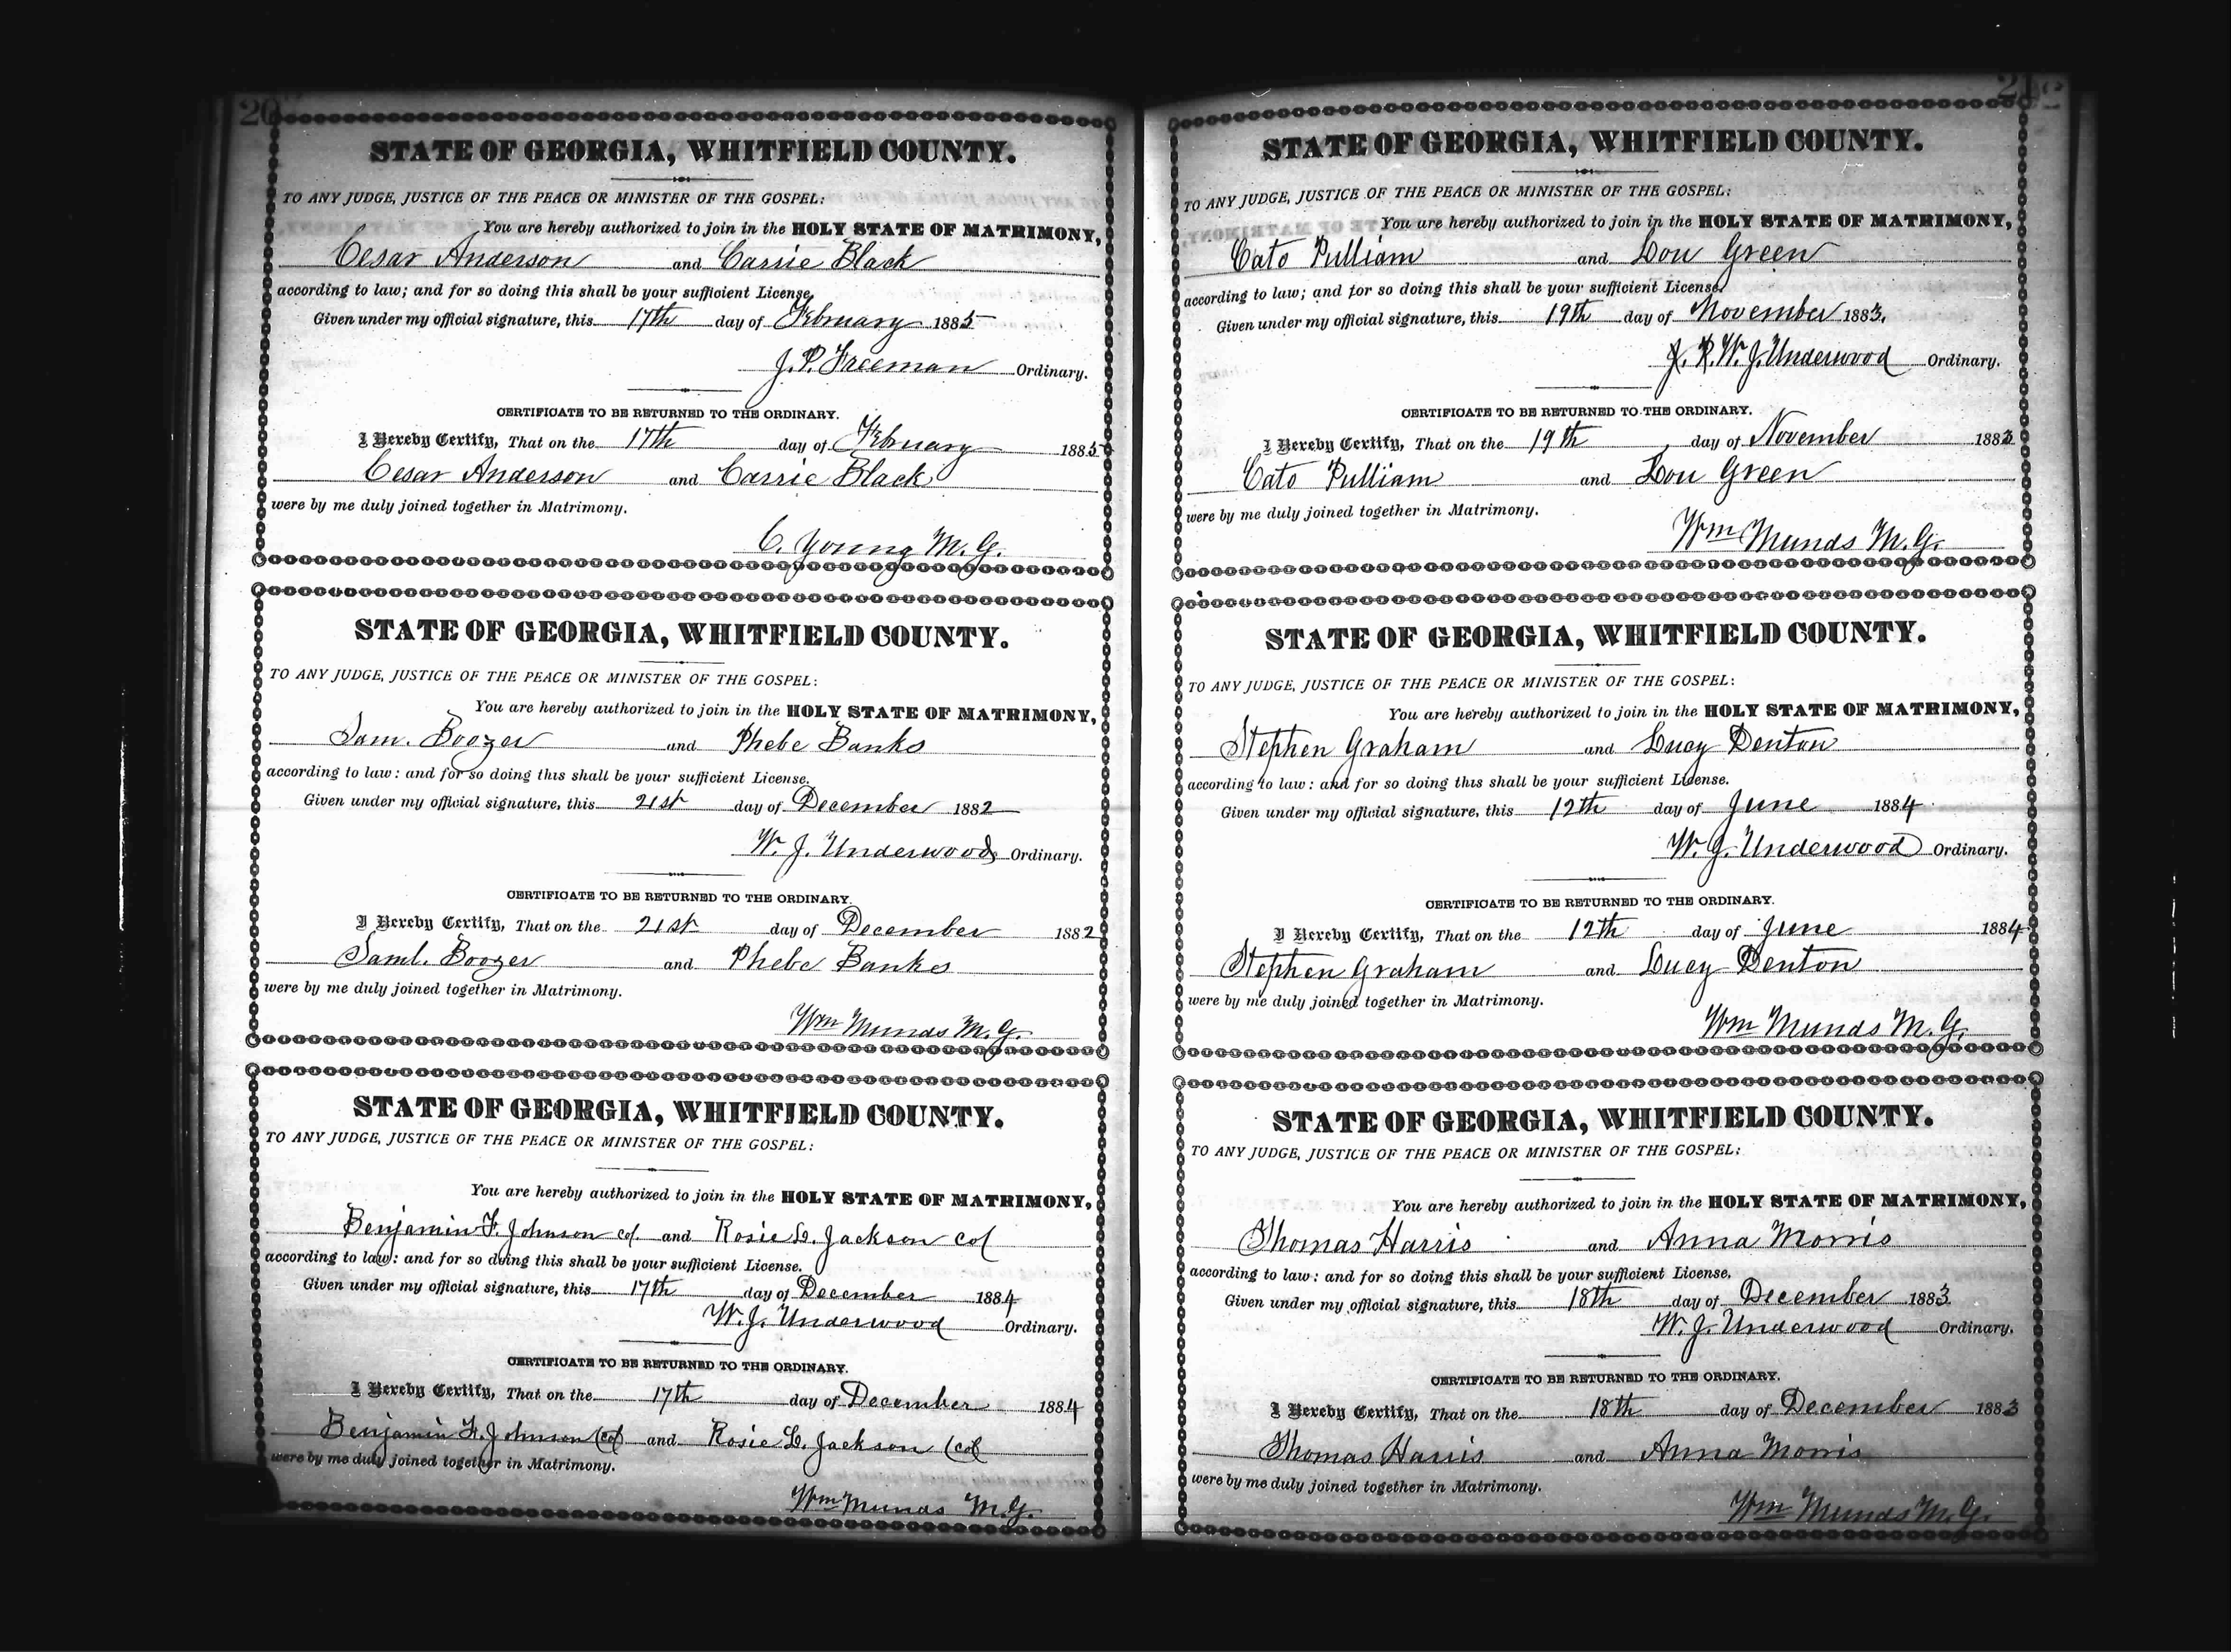 20
STATE OF GEORGIA, WHITFIELD COUNTY.
TO ANY JUDGE, JUSTICE OF THE PEACE OR MINISTER OF THE GOSPEL:
You are hereby authorized to join in the HOLY STATE OF MATRIMONY,
Cesar Anderson and Carrie Black
according to law; and for so doing this shall be your sufficient License.
Given under my official signature, this 17th day of February 1885
J. P. Freeman Ordinary.
CERTIFICATE TO BE RETURNED TO THE ORDINARY.
I Hereby Certify, That on the 17th day of February 1885
Cesar Anderson and Carrie Black
were by me duly joined together in Matrimony.
C. Young M. G.
STATE OF GEORGIA, WHITFIELD COUNTY.
TO ANY JUDGE, JUSTICE OF THE PEACE OR MINISTER OF THE GOSPEL:
You are hereby authorized to join in the HOLY STATE OF MATRIMONY,
Sam. Boozer and Phebe Banks
according to law: and for so doing this shall be your sufficient License.
Given under my official signature, this 21st day of December 1882
W. J. Underwood Ordinary.
CERTIFICATE TO BE RETURNED TO THE ORDINARY.
I Hereby Certify, That on the 21st day of December 1882
Saml. Boozer and Phebe Banks
were by me duly joined together in Matrimony.
Wm Munds M. G.
STATE OF GEORGIA, WHITFIELD COUNTY.
TO ANY JUDGE, JUSTICE OF THE PEACE OR MINISTER OF THE GOSPEL:
You are hereby authorized to join in the HOLY STATE OF MATRIMONY,
Benjamin F. Johnson col. and Rosie L. Jackson col
according to law: and for so doing this shall be your sufficient License.
Given under my official signature, this 17th day of December 1884
W. J. Underwood Ordinary.
CERTIFICATE TO BE RETURNED TO THE ORDINARY.
I Hereby Certify, That on the 17th day of December 1884
Benjamin F. Johnson (col) and Rosie L. Jackson (col
were by me duly joined together in Matrimony.
Wm Munds M. G.
21
STATE OF GEORGIA, WHITFIELD COUNTY.
TO ANY JUDGE, JUSTICE OF THE PEACE OR MINISTER OF THE GOSPEL:
You are hereby authorized to join in the HOLY STATE OF MATRIMONY,
Cato Pulliam and Lou Green
according to law; and for so doing this shall be your sufficient License.
Given under my official signature, this 19th day of November 1883.
W. J. Underwood Ordinary.
CERTIFICATE TO BE RETURNED TO THE ORDINARY.
I Hereby Certify, That on the 19th day of November 1883
Cato Pulliam and Lou Green
were by me duly joined together in Matrimony.
Wm Munds M. G.
STATE OF GEORGIA, WHITFIELD COUNTY.
TO ANY JUDGE, JUSTICE OF THE PEACE OR MINISTER OF THE GOSPEL:
You are hereby authorized to join in the HOLY STATE OF MATRIMONY,
Stephen Graham and Lucy Denton
according to law: and for so doing this shall be your sufficient License.
Given under my official signature, this 12th day of June 1884
W. J. Underwood Ordinary.
CERTIFICATE TO BE RETURNED TO THE ORDINARY.
I Hereby Certify, That on the 12th day of June 1884
Stephen Graham and Lucy Denton
were by me duly joined together in Matrimony.
Wm Munds M. G.
STATE OF GEORGIA, WHITFIELD COUNTY.
TO ANY JUDGE, JUSTICE OF THE PEACE OR MINISTER OF THE GOSPEL:
You are hereby authorized to join in the HOLY STATE OF MATRIMONY,
Thomas Harris and Anna Morris
according to law: and for so doing this shall be your sufficient License.
Given under my official signature, this 18th day of December 1883
W. J. Underwood Ordinary.
CERTIFICATE TO BE RETURNED TO THE ORDINARY.
I Hereby Certify, That on the 18th day of December 1883
Thomas Harris and Anna Morris
were by me duly joined together in Matrimony.
Wm Munds M. G.